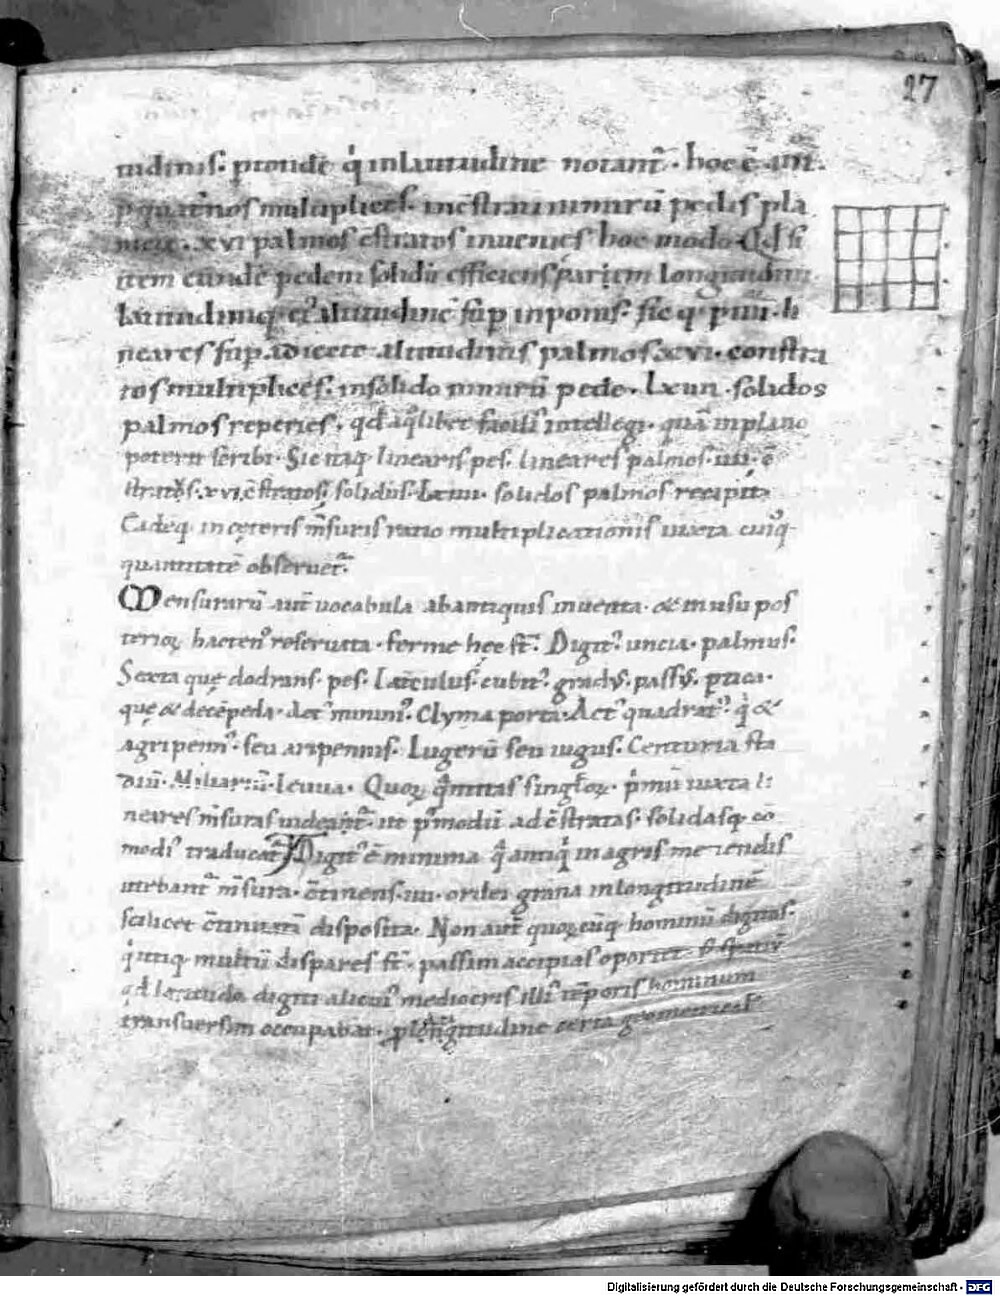 27
tudinis. proinde q̇ in latitudine notant᷒. hoc ē. IIII.
p quat̄nos multiplices. in c̄strati mmurū pedis pla
nicie. xvi palmos c̄stratos inuenies hoc modo. Qd si
item eundē pedem solidū efficiens. paritem longitudini
latitudiniq; ei᷒ altitudinē sup inponis. sic q. p̄mū. li
neares sup. adiecte altitudinis palmos. xvi. constra
tos multiplices. in solido pede. lxiiii. solidos
palmos reperies. qd a q̇libet facili᷒ intellegi. quā in plano
poterit scribi. Sic itaq; linearis pes. lineares palmos. iiii. c̄
stratos. xvi. c̄stratos. solidus. Lxiiii. solidos palmos recipit.
Eadēq; in ceteris m̄suris ratio multiplicationis iuxta cuiq;
quantitatē obseruet᷒.
Mensurarū aut̄ uocabula ab antiquis inuenta. & in usu pos
terioꝝ hacten᷒ reseruata. ferme hęc st̄. Digit᷒. uncia. palmus.
Sexta quę & dodrans. pes. Laterculus. cubit᷒. grad᷒. pass᷒. ptica.
quę & decēpeda. Act᷒ minim᷒. Clyma porca. Act᷒ quadrat᷒. q̇ &
agripenn᷒. seu aripennis. Iugerū seu iugus. Centuria sta
diū. Miliariū. Leuua. Quoꝝ q̄ntitas singloꝝ. ṗmū iuxta li
neares m̄suras uideant᷒. ut p᷒modū ad c̄stratas. solidasq; cō
modi᷒ traducat᷒. Digit᷒ ē minima q̄ antiq̇ in agris meciendis
utebant᷒ m̄sura. c̄tinens. iiii. ordei grana in longitudinē
scilicet c̄tinuatī disposita. Non aut̄ quoꝝcūq; hominū digitos.
q̇ utiq; multū dispares st̄. passim accipias oportet.
digiti alicui᷒ mediocris illi᷒ t̄poris hominum
transuersim occupabat. p longitudine certa geometricalis
Digitalisierung gefördert durch die Deutsche Forschungsgemeinschaft - DFG